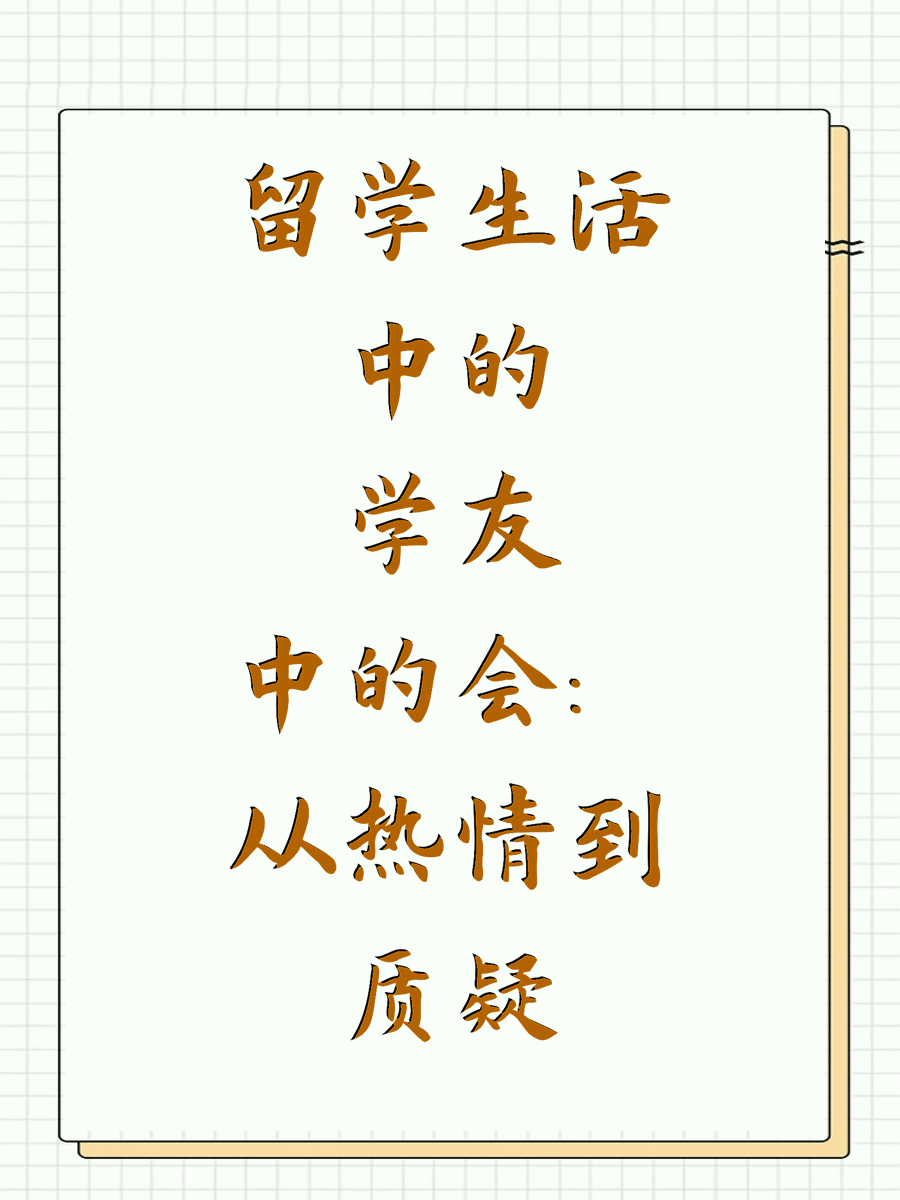 留学生活
中的
学友
中的会：
从热情到
质疑